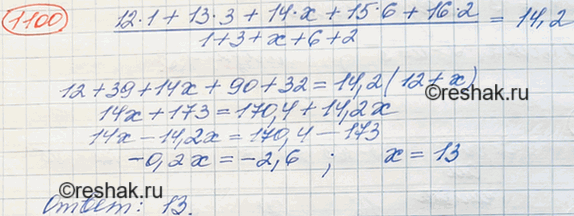 1100
12·1 + 13·3 + 14·x + 15·6 + 16·2
1+3+x+6+2
= 14,2
12 + 39 + 14x + 90 + 32 = 14,2 (12 + x)
14x + 173 = 170,4 + 14,2x
14x - 14,2x = 170,4 - 173
-0,2x = -2,6 ; x = 13
Ответ: 13.